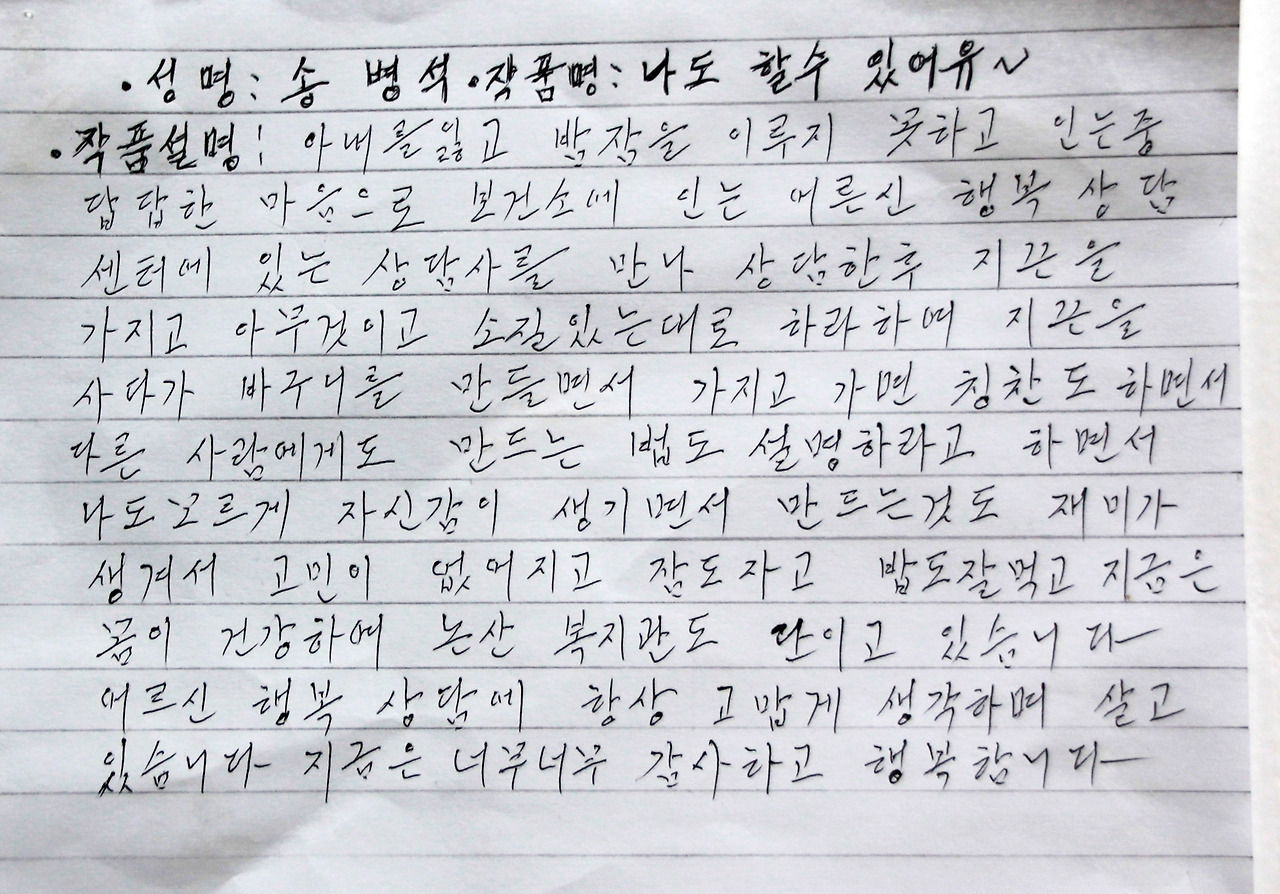 ·성명: 송 병석 ·작품명: 나도 할수 있어유~
·작품설명: 아내를잃고 밤잠을 이루지 못하고 인는중
답답한 마음으로 보건소에 인는 어른신 행복 상담
센터에 있는 상담사를 만나 상담한후 지끈을
가지고 아무것이고 소질있는대로 하라하며 지끈을
사다가 바구니를 만들면서 가지고 가면 칭찬도 하면서
다른 사람에게도 만드는 법도 설명하라고 하면서
나도모르게 자신감이 생기면서 만드는것도 재미가
생겨서 고민이 없어지고 잠도자고 밥도잘먹고 지금은
몸이 건강하며 논산 복지관도 단이고 있습니다
어르신 행복 상담에 항상 고맙게 생각하며 살고
있습니다 지금은 너무너무 감사하고 행복합니다